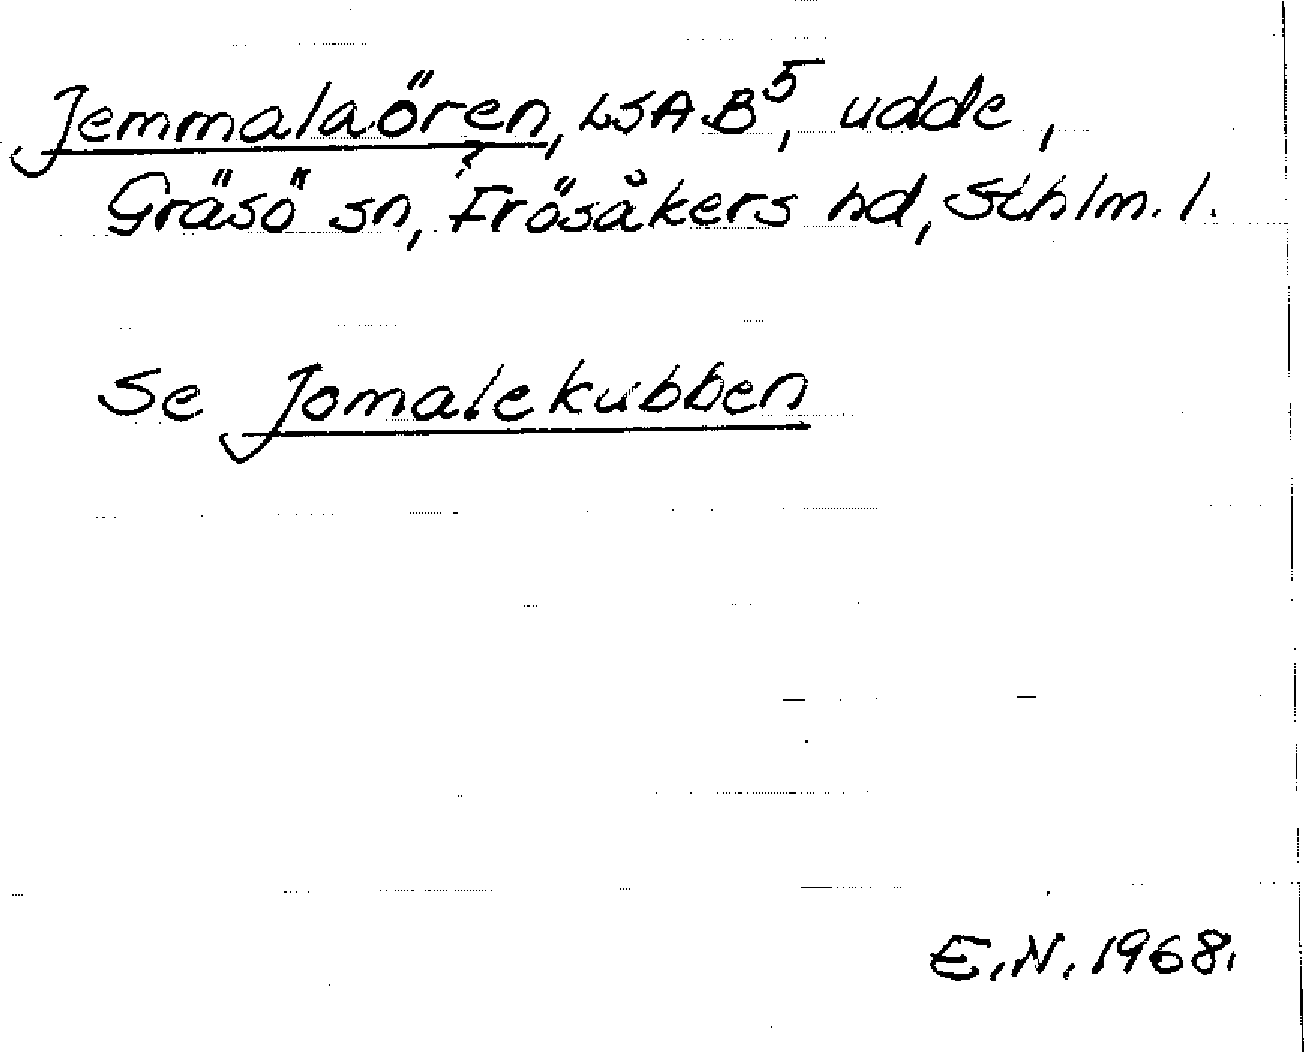 Jemmalaören, LSA B5, udde,
Gräsö sn, Frösåkers hd, Sthlm. l.
Se Jomalekubben
E.N. 1968.